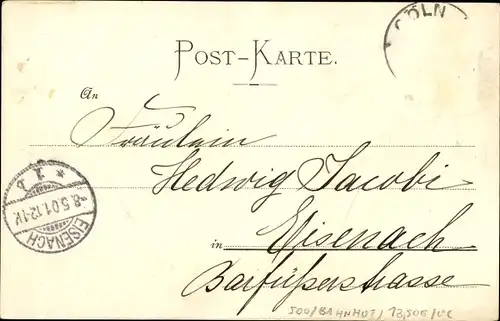 CÖLN
POST-KARTE.
An
Fräulein
Hedwig Jacobi
in Eisenach
Barfüßerstrasse
EISENACH
-8.5.01.12-1V.
* 1 b
500/BAHNHOF/ 13,50E/